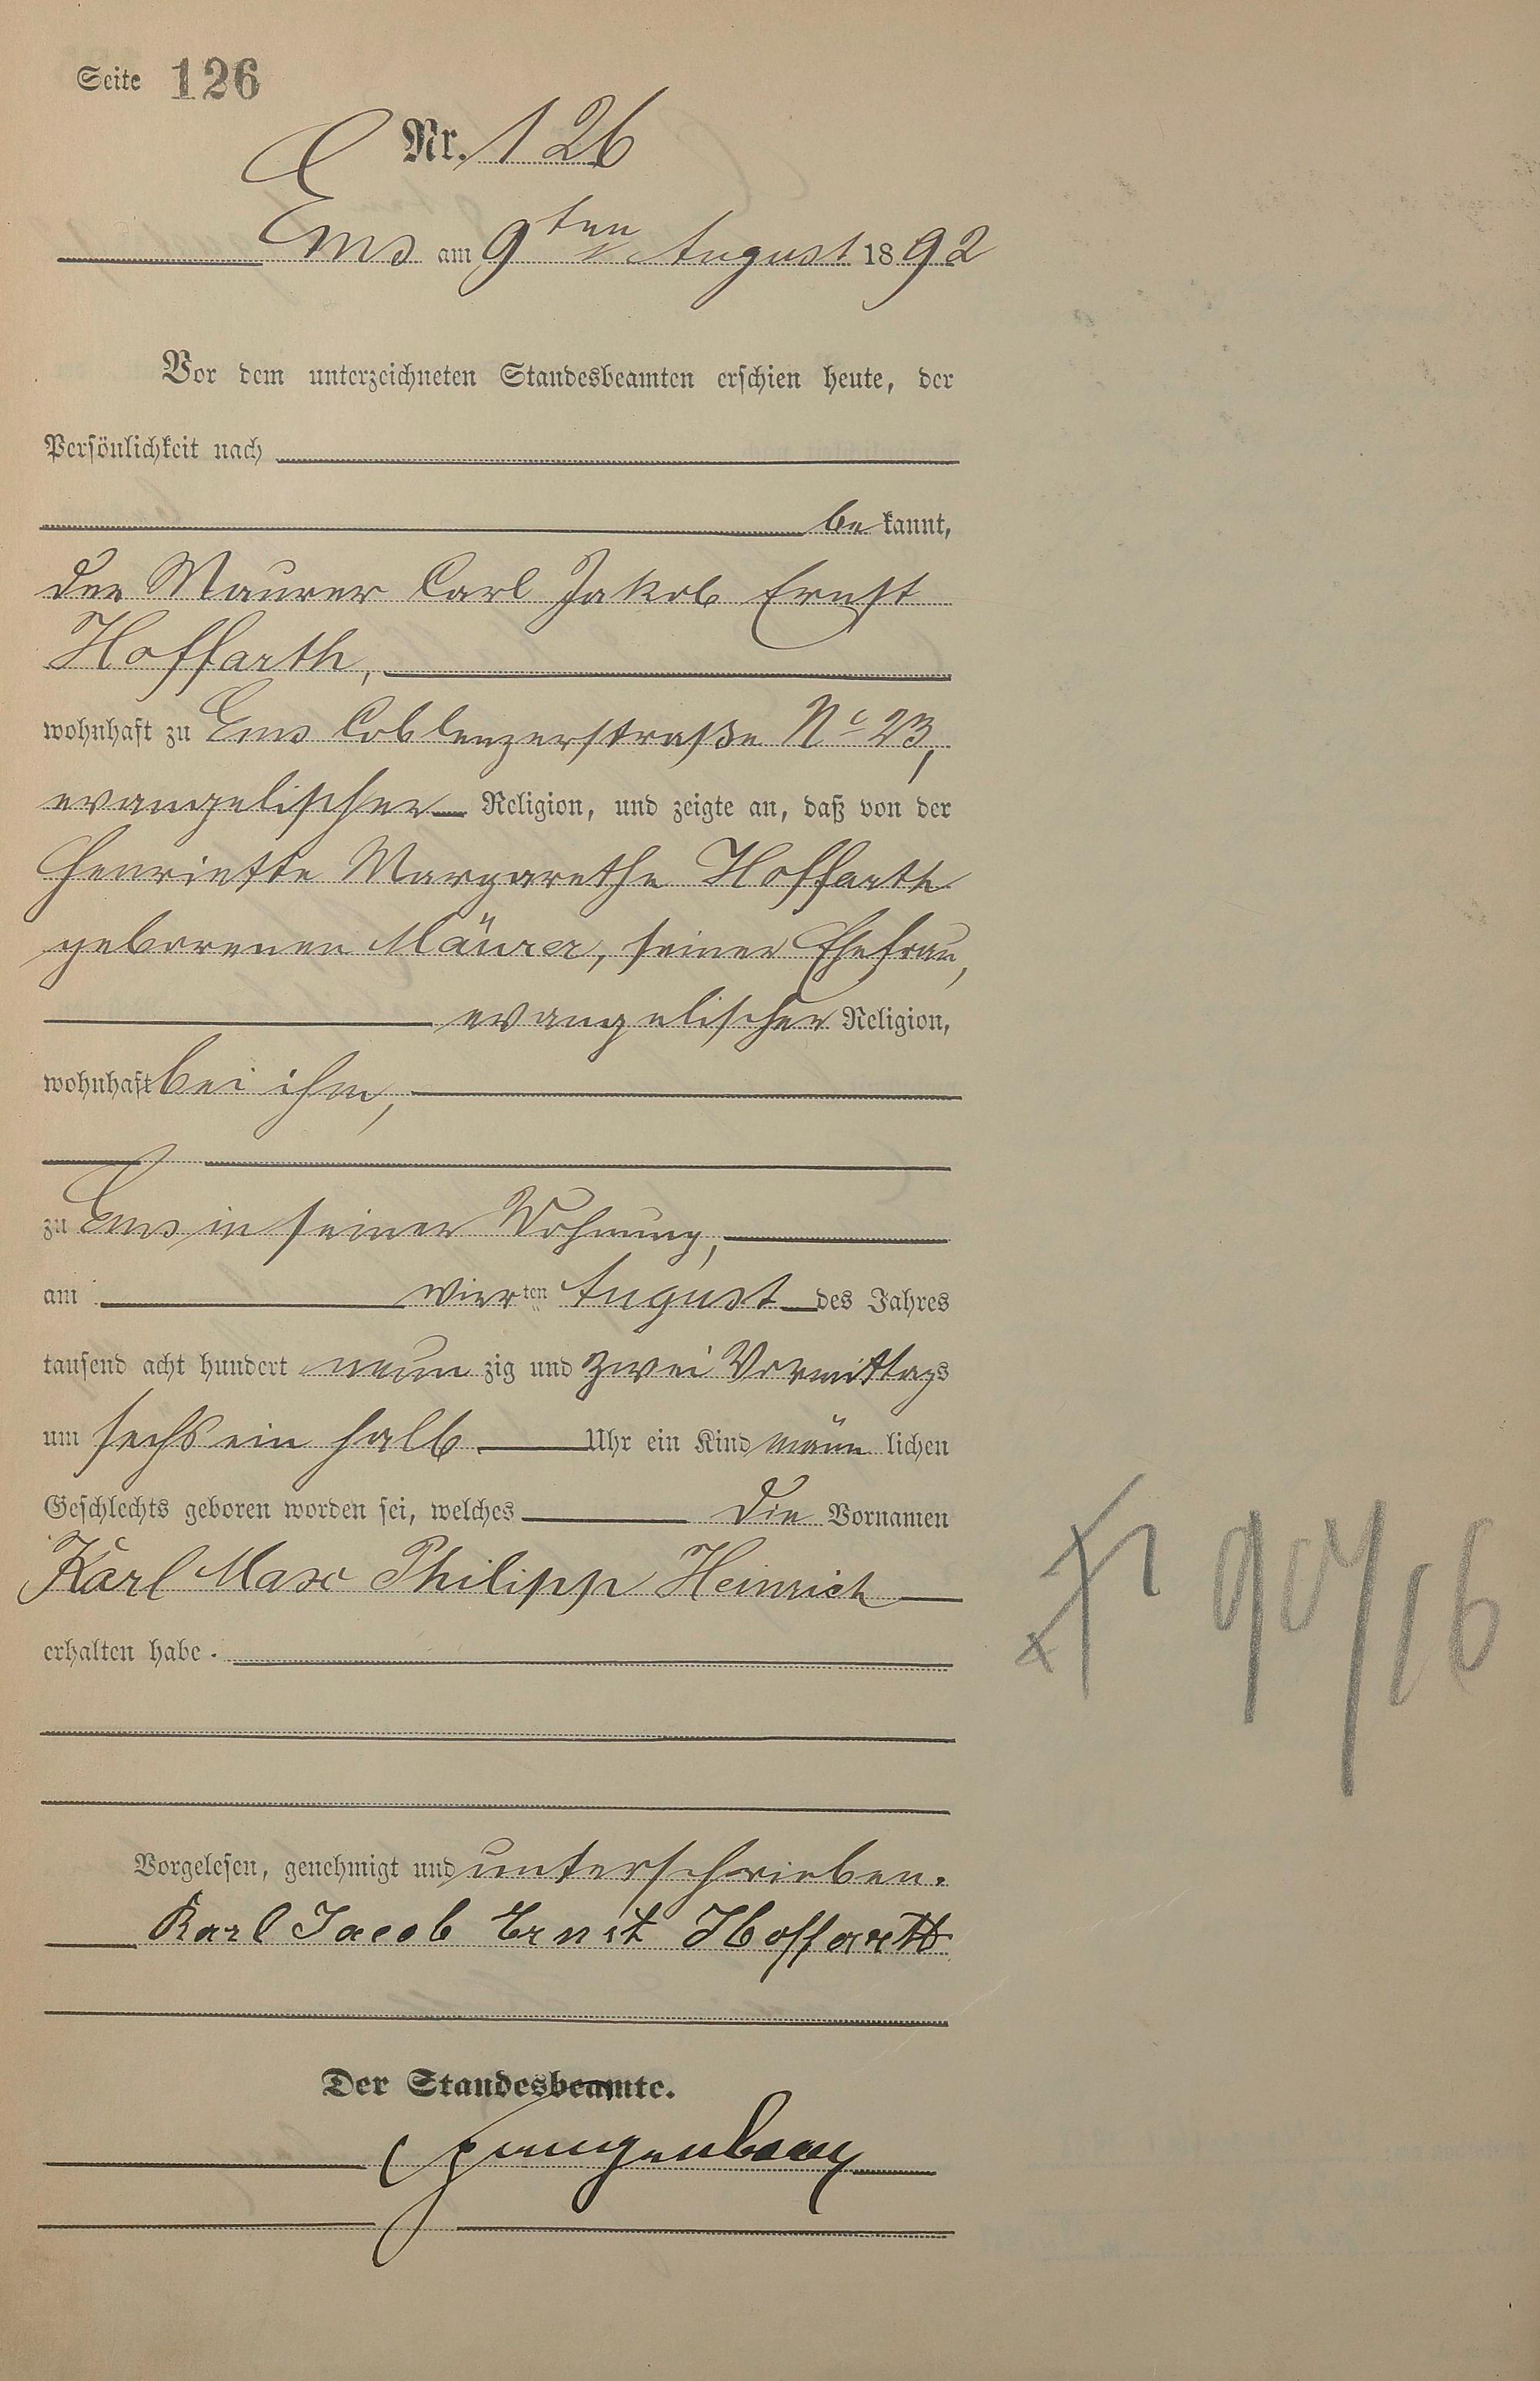 Seite 126
Nr. 126
Ems am 9ten August 1892
Vor dem unterzeichneten Standesbeamten erschien heute, der
Persönlichkeit nach
bekannt,
der Maurer Carl Jakob Ernst
Hoffarth,
wohnhaft zu Ems Coblenzerstraße No 23,
evangelischer Religion, und zeigte an, daß von der
Henriette Margarethe Hoffarth
geborenen Mäurer, seiner Ehefrau,
evangelischer Religion,
wohnhaft bei ihm,
zu Ems in seiner Wohnung,
am vierten August des Jahres
tausend acht hundert neunzig und zwei Vormittags
um sechs ein halb Uhr ein Kind männlichen
Geschlechts geboren worden sei, welches die Vornamen
Karl Max Philipp Heinrich
erhalten habe.
Vorgelesen, genehmigt und unterschrieben.
Karl Jacob Ernst Hoffarth
Der Standesbeamte.